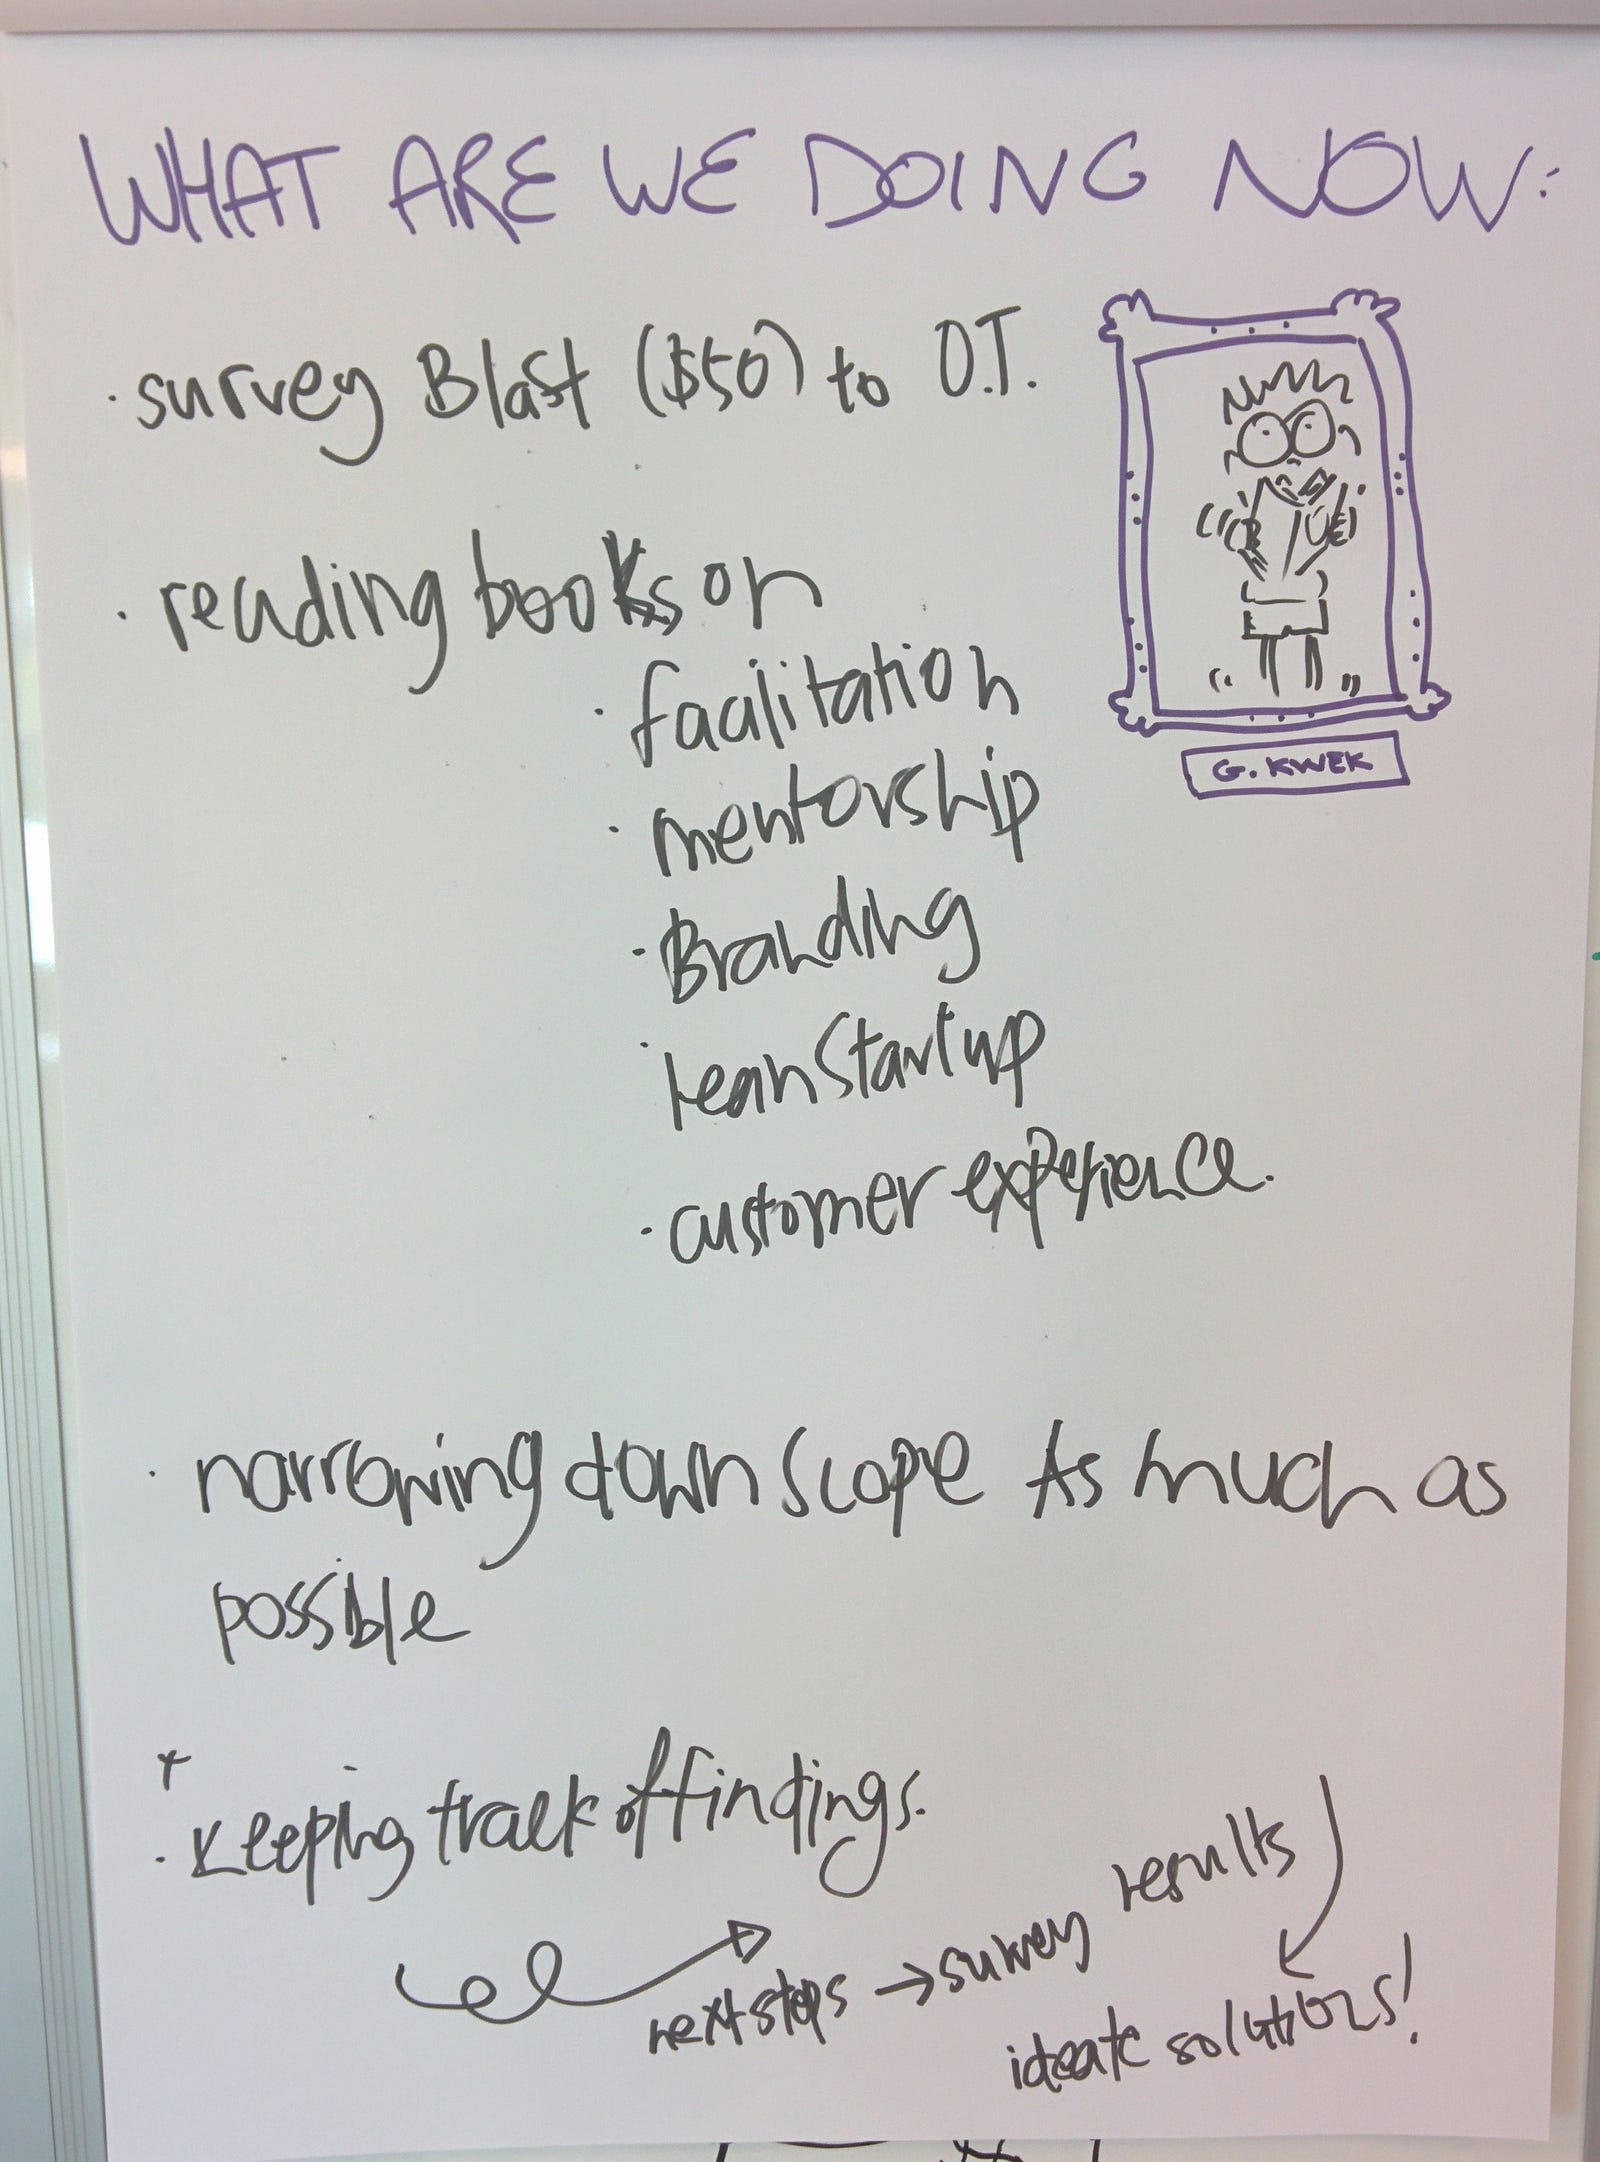 WHAT ARE WE DOING NOW:
· survey Blast ($50) to O.T.
· reading books on
· facilitation
· mentorship
· Branding
· lean Startup
· customer experience.
G. KWEK
· narrowing down scope As much as
possible
+
· Keeping track of findings.
next steps → survey results
ideate solutions!